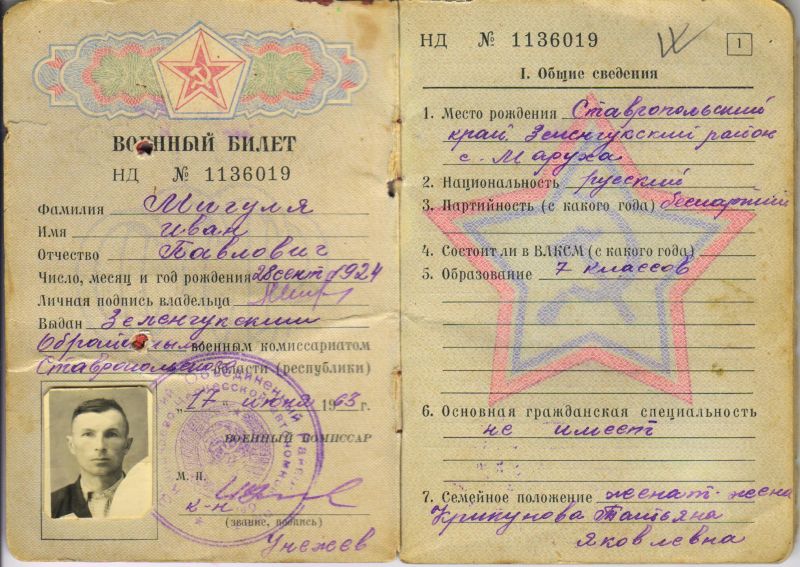 ВОЕННЫЙ БИЛЕТ
НД № 1136019
Фамилия Мигуля
Имя Иван
Отчество Павлович
Число, месяц и год рождения 28 сент. 1924
Личная подпись владельца
Выдан Зеленчукский
Обрайонным военным комиссариатом
Ставропольской области (республики)
„17" июня 1963 г.
ВОЕННЫЙ КОМИССАР
М. п.
к-н
(звание, подпись)
Унежев
НД № 1136019
1
I. Общие сведения
1. Место рождения Ставропольский
край Зеленчукский район
с. Маруха
2. Национальность русский
3. Партийность (с какого года) беспартий
4. Состоит ли в ВЛКСМ (с какого года)
5. Образование 7 классов
6. Основная гражданская специальность
не имеет
7. Семейное положение женат - жена
Крикунова Татьяна
Яковлевна